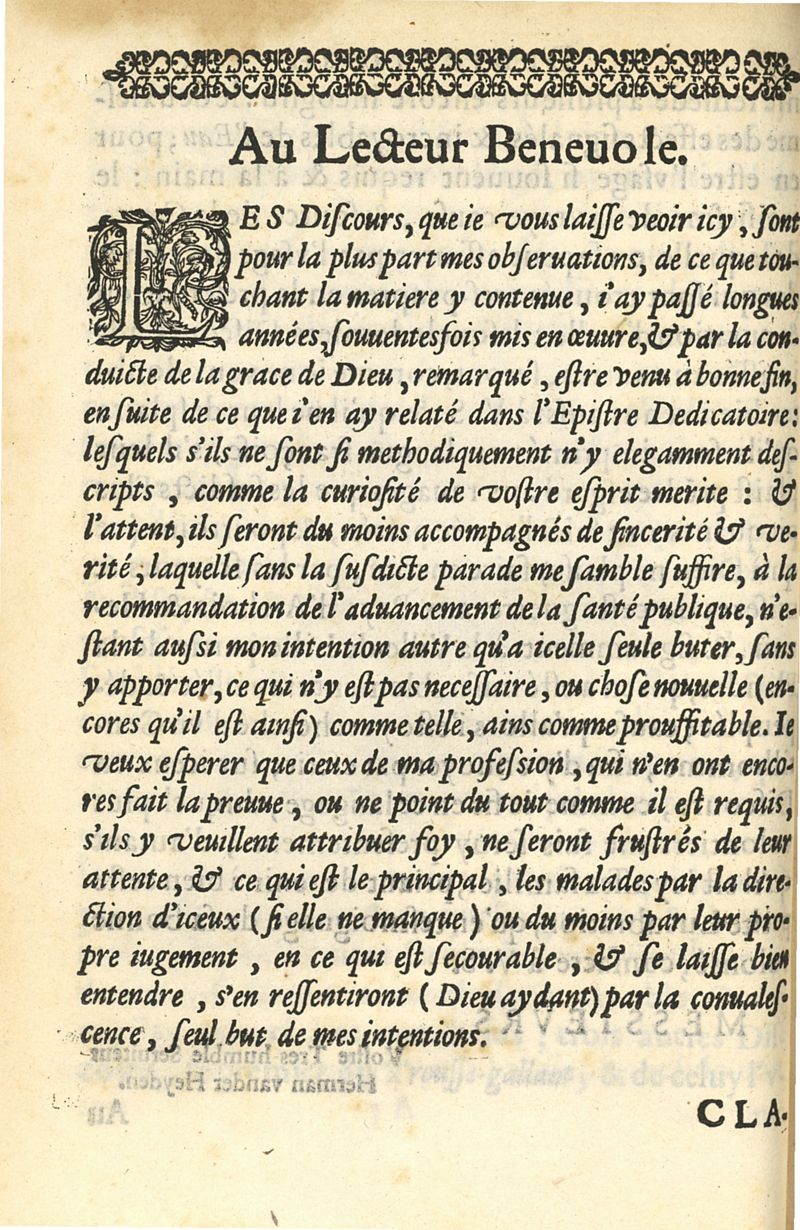 Au Lecteur Beneuole.
LES Diſcours, que ie vous laiſſe veoir icy, ſont
pour la plus part mes obſeruations, de ce que tou-
chant la matiere y contenue, i'ay paſſé longues
années, ſouuentesfois mis en œuure, & par la con-
duicte de la grace de Dieu, remarqué, eſtre venu à bonne fin,
en ſuite de ce que i'en ay relaté dans l'Epiſtre Dedicatoire:
leſquels s'ils ne ſont ſi methodiquement n'y elegamment deſ-
cripts, comme la curioſité de voſtre eſprit merite: &
l'attent, ils ſeront du moins accompagnés de ſincerité & ve-
rité, laquelle ſans la ſuſdicte parade me ſamble ſuffire, à la
recommandation de l'aduancement de la ſanté publique, n'e-
ſtant auſſi mon intention autre qu'a icelle ſeule buter, ſans
y apporter, ce qui n'y eſt pas neceſſaire, ou choſe nouuelle (en-
cores qu'il eſt ainſi) comme telle, ains comme prouffitable. Ie
veux eſperer que ceux de ma profeſsion, qui n'en ont enco-
res fait la preuue, ou ne point du tout comme il eſt requis,
s'ils y veuillent attribuer foy, ne ſeront fruſtrés de leur
attente, & ce qui eſt le principal, les malades par la dire-
ction d'iceux (ſi elle ne manque) ou du moins par leur pro-
pre iugement, en ce qui eſt ſecourable, & ſe laiſſe bien
entendre, s'en reſſentiront (Dieu aydant) par la conualeſ-
cence, ſeul but de mes intentions.
CLA-